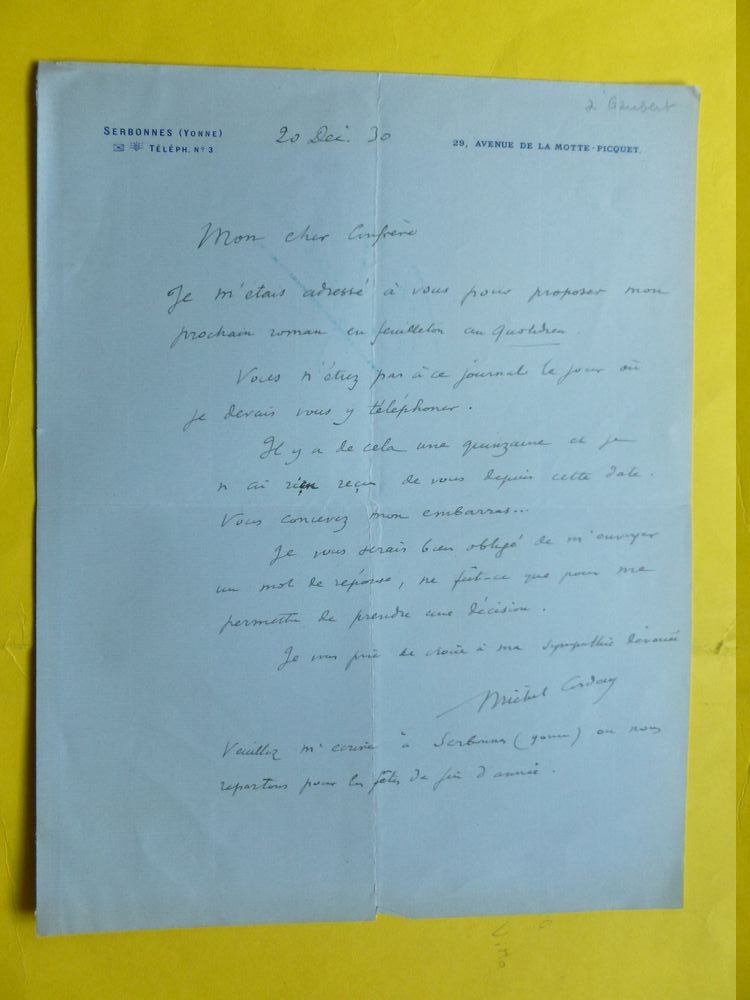 à Gaubert
SERBONNES (YONNE)
TÉLÉPH. Nº 3
20 Déc. 30
29, AVENUE DE LA MOTTE-PICQUET.
Mon cher Confrère
Je m'étais adressé à vous pour proposer mon
prochain roman en feuilleton au Quotidien.
Vous n'étiez pas à ce journal le jour où
je devais vous y téléphoner.
Il y a de cela une quinzaine et je
n'ai rien reçu de vous depuis cette date.
Vous concevez mon embarras...
Je vous serais bien obligé de m'envoyer
un mot de réponse, ne fût-ce que pour me
permettre de prendre une décision.
Je vous prie de croire à ma sympathie dévouée
Michel Corday
Veuillez m'écrire à Serbonnes (Yonne) où nous
repartons pour les fêtes de fin d'année.